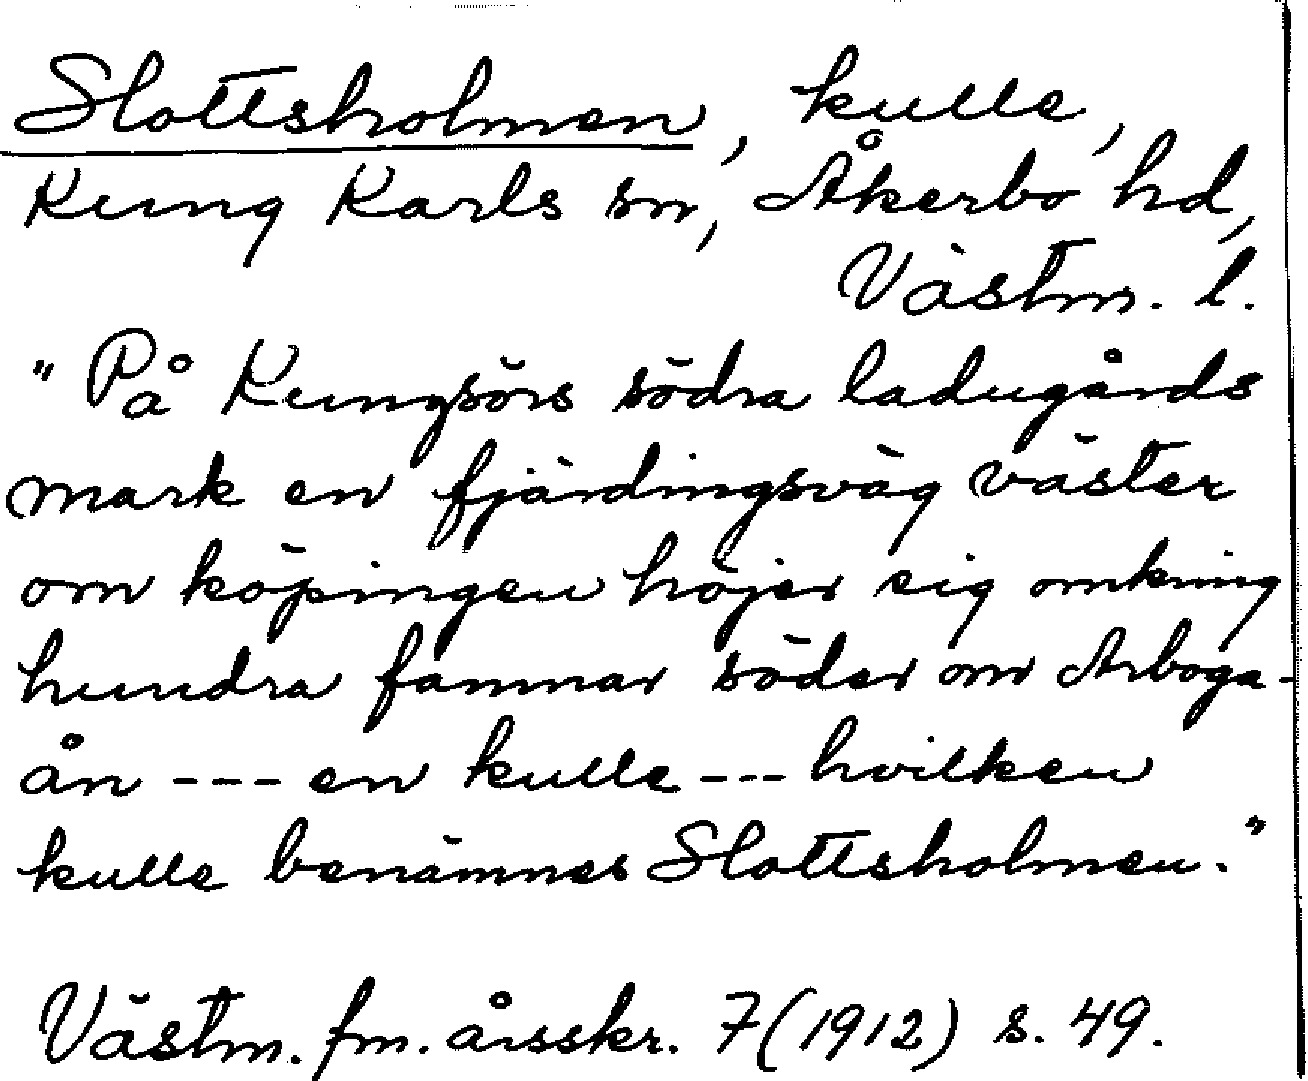 Slottsholmen, kulle,
Kung Karls sn, Åkerbo hd,
Västm. l.
"På Kungsörs södra ladugårds
mark en fjärdingsväg väster
om köpingen höjer sig omkring
hundra famnar söder om Arboga-
ån --- en kulle --- hvilken
kulle benämnes Slottsholmen."
Västm. fm. årsskr. 7 (1912) s. 49.